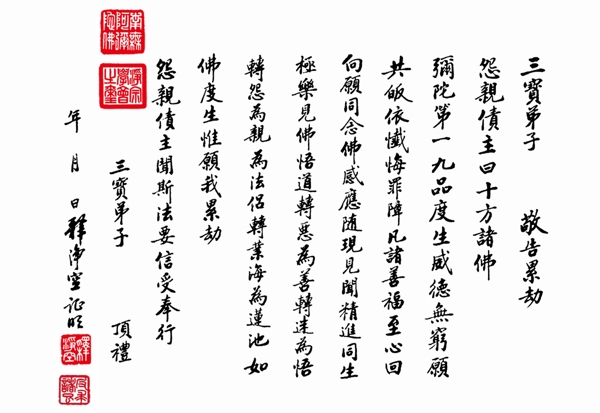 三寶弟子 敬告累劫
怨親債主曰十方諸佛
彌陀第一九品度生威德無窮願
共皈依懺悔罪障凡諸善福至心回
向願同念佛感應隨現見聞精進同生
極樂見佛悟道轉惡為善轉迷為悟
轉怨為親為法侶轉業海為蓮池如
佛度生惟願我累劫
怨親債主聞斯法要信受奉行
三寶弟子 頂禮
南無阿彌陀佛
淨宗學會之璽
年 月 日釋淨空証明
釋淨空